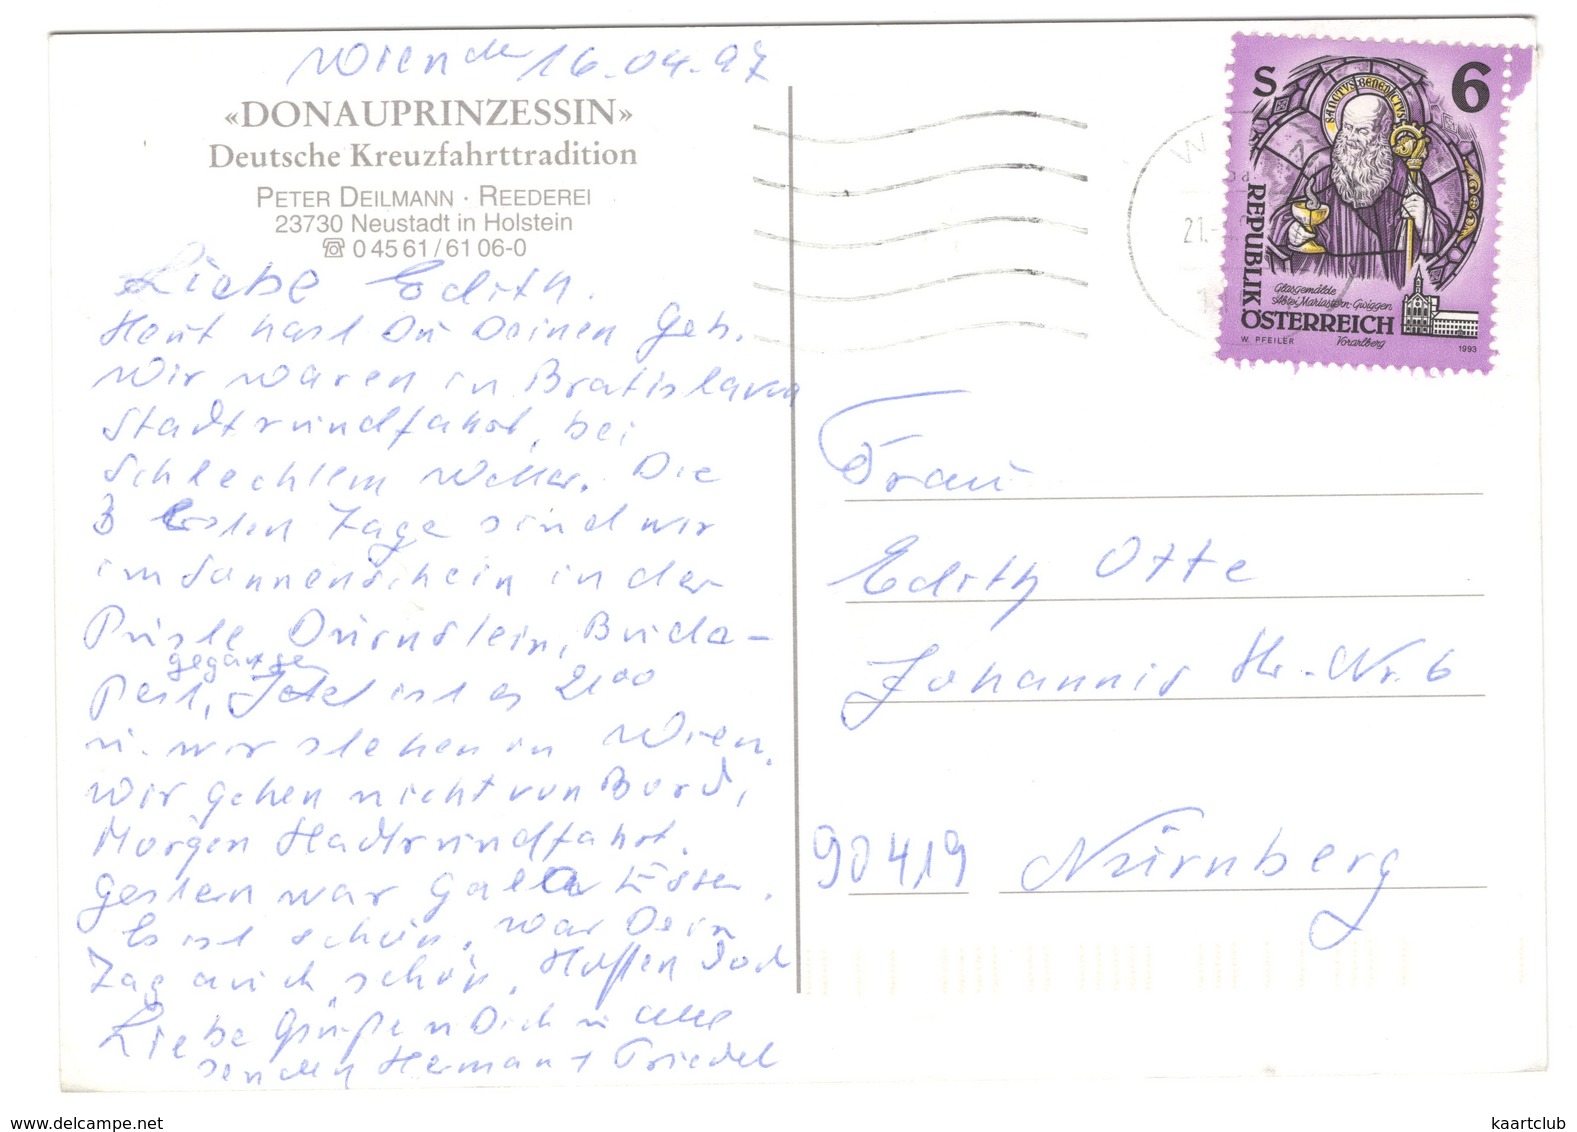 Wien de 16.04.97
«DONAUPRINZESSIN»
Deutsche Kreuzfahrttradition
PETER DEILMANN · REEDEREI
23730 Neustadt in Holstein
☏ 0 45 61 / 61 06-0
Liebe Edith.
Heut hast Du Deinen Geb.
Wir waren in Bratislava
Stadtrundfahrt, bei
Schlechtem Wetter. Die
3 ersten Tage sind wir
im Sonnenschein in der
Puste, Dürnstein, Buda-
gegangen
Pest, Jetzt ist es 21⁰⁰
u. wir stehen in Wien.
Wir gehen nicht von Bord,
Morgen Stadtrundfahrt.
Gestern war Gala Essen.
Es ist schön, war Dein
Tag auch schön, Hoffen doch
Liebe Grüße n Dich u alle
senden Herman + Friedel
S 6
SANCTVS BENEDICTVS
REPUBLIK
ÖSTERREICH
Glasgemälde
Abtei Mariastern-Gwiggen
Vorarlberg
W. PFEILER
1993
W
21.
Frau
Edith Otte
Johannis Str.-Nr. 6
90419 Nürnberg
www.delcampe.net
kaartclub